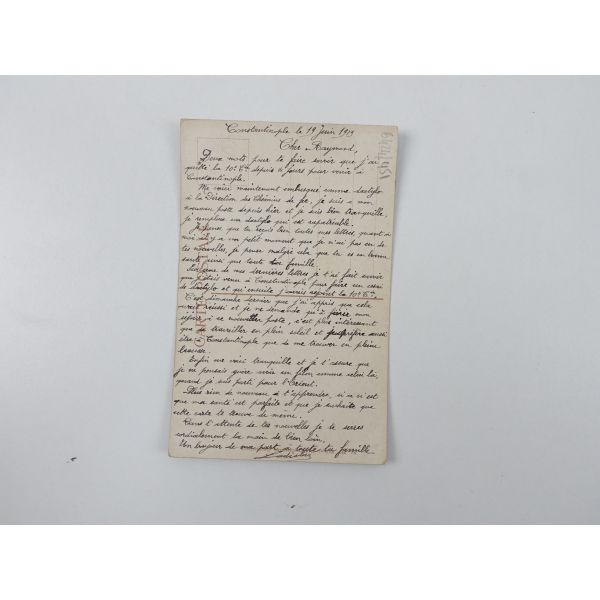 Constantinople le 19 Juin 1919
Cher Raymond,
Deux mots pour te faire savoir que j'ai
quitté la 10e Cie depuis 6 jours pour venir à
Constantinople.
Me voici maintenant embusqué comme dactylo
à la Direction des Chemins de fer, je suis à mon
nouveau poste depuis hier et je suis bien tranquille,
je remplace un dactylo qui est rapatriable.
Je pense que tu reçois bien toutes mes lettres, quant à
moi il y a un petit moment que je n'ai pas eu de
tes nouvelles, je pense malgré cela que tu es en bonne
santé ainsi que toute ta famille.
de mes dernières lettres je t'ai fait savoir
que j'étais venu à Constantinople pour faire un essai
de Dactylo et qu'ensuite j'avais rejoint la 10e Cie.
C'est dimanche dernier que j'ai appris que cela
avait réussi et je ne demande qu'à finir mon
séjour à ce nouveau poste, c'est plus intéressant
que de travailler en plein soleil et je préfère aussi
être à Constantinople que de me trouver en pleine
brousse.
Enfin me voici tranquille et je t'assure que
je ne pensais guère avoir un filon comme celui-là,
quand je suis parti pour l'Orient.
Plus rien de nouveau à t'apprendre, si ce n'est
que ma santé est parfaite et que je souhaite que
cette carte te trouve de même.
Dans l'attente de tes nouvelles je te serres
cordialement la main de bien loin.
Un bonjour de ma part à toute ta famille.